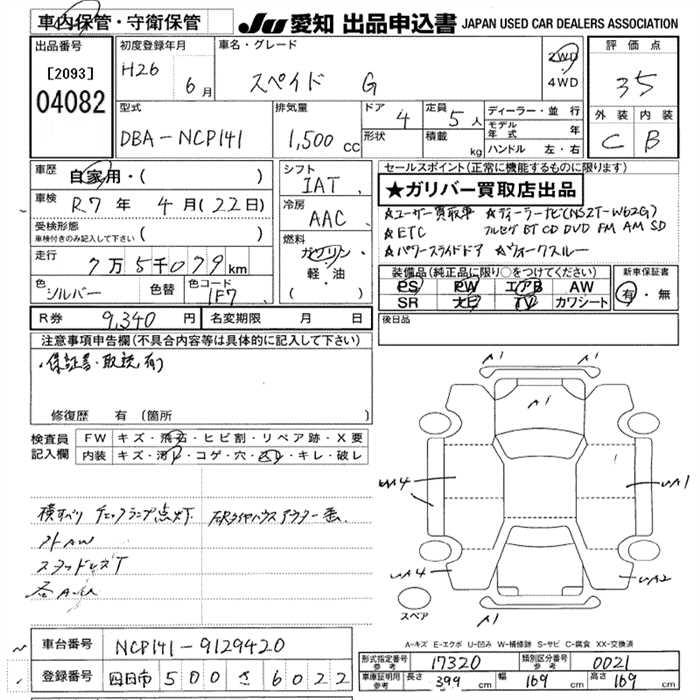 車内保管・守衛保管
JU 愛知 出品申込書 JAPAN USED CAR DEALERS ASSOCIATION
出品番号
[2093]
04082
初度登録年月
H26 6 月
車名・グレード
スペイド G
2WD
4WD
評価点
3.5
外装 内装
C B
型式
DBA-NCP141
排気量
1,500 cc
ドア 4
形状
定員 5 人
積載 kg
ディーラー・並行
モデル年式 年
ハンドル 左・右
車歴
自家用・( )
車検
R7 年 4 月(22日)
受検形態
車検付きのみ記入して下さい ( )
走行
7万5千079 km
色
シルバー
色替
色コード
1F7
シフト
IAT
冷房
AAC
燃料
ガソリン
軽・油
( )
セールスポイント(正常に機能するものに限ります)
★ガリバー買取店出品
☆ユーザー買取車 ☆ディーラーナビ(NSZT-W62G)
☆ETC フルセグ BT CD DVD FM AM SD
☆パワースライドドア ☆ウォークスルー
装備品(純正品に限り○をつけてください)
PS PW エアB AW
SR 本革 TV カワシート
新車保証書
有・無
R券 9,340 円
名変期限 月 日
後日品
注意事項申告欄(不具合内容等は具体的に記入して下さい)
・保証書・取説有り
修復歴 有(箇所
検査員記入欄
FW キズ・飛石・ヒビ割・リペア跡・X要
内装 キズ・汚レ・コゲ・穴・スレ・キレ・破レ
横すべり チェックランプ点灯
外AW
スタッドレスT
A1 A1
A1
UA4 UA1
UA4 UA2
A1
スペア
A-キズ E-エクボ U-凹み W-補修跡 S-サビ C-腐食 XX-交換済
車台番号 NCP141-9129420
登録番号 四日市 500 さ 6022
形式指定番号 参考 17320
類別区分番号 参考 0021
車庫証明用 参考 長さ 399 cm 幅 169 cm 高さ 169 cm